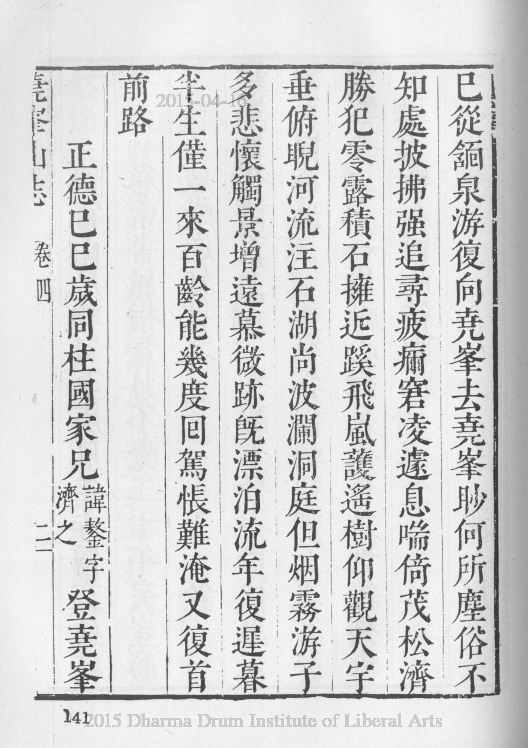 已從頟泉游復向堯峯去堯峯眇何所塵俗不
知處披拂强追尋疲痡窘凌遽息喘倚茂松濟
勝犯零露積石擁近蹊飛嵐護遙樹仰觀天宇
垂俯睨河流注石湖尚波瀾洞庭但烟霧游子
多悲懷觸景增遠慕微跡旣漂泊流年復遲暮
半生僅一來百齡能幾度回駕悵難淹又復首
前路
正德巳巳歲同柱國家兄諱鏊字濟之登堯峯
堯峯山志 卷四 二
141
2015-04-16
2015 Dharma Drum Institute of Liberal Arts